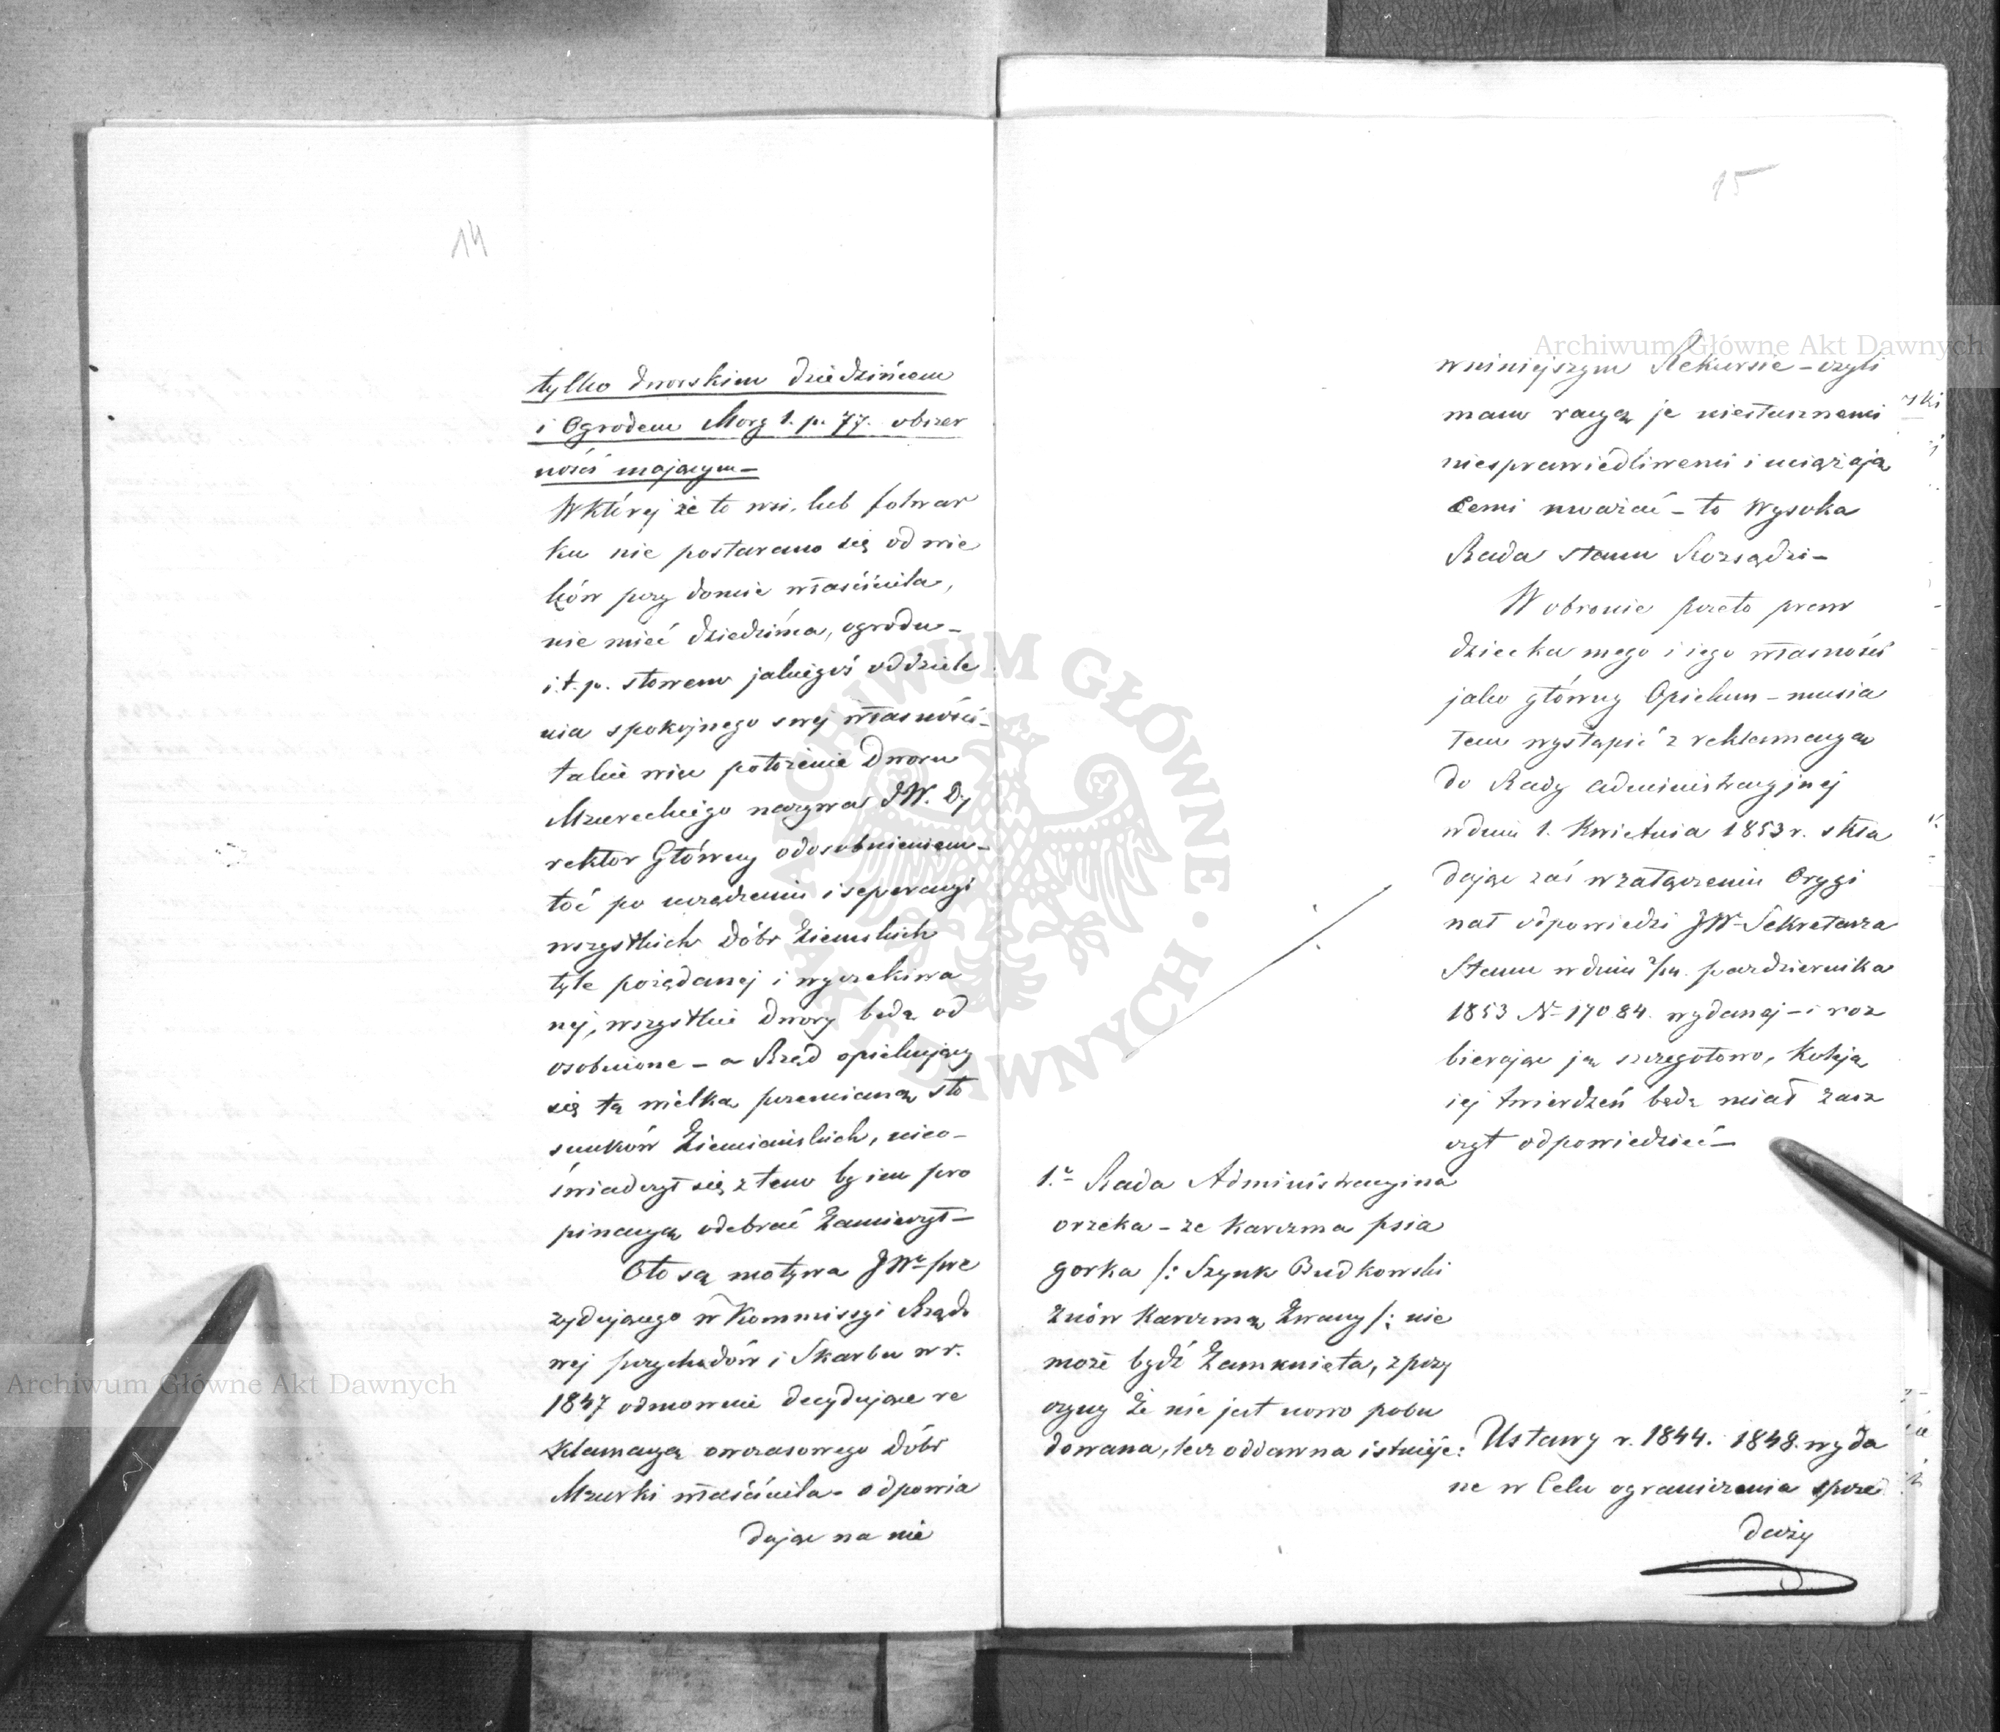 14
tylko dworskiem dziedzińcem
i Ogrodem Morg 1. p. 77. obszer
ność mającym –
W której że to wsi, lub folwar
ku nie postarano się od wie
ków przy domie właściciela,
nie mieć dziedzińca, ogrodu –
i.t.p. słowem jakiegoś oddziele
nia spokojnego swej własności –
takie więc położenie Dworu
Mzureckiego nazywa JW. Dy
rektor Główny odosobnieniem –
toć po urządzeniu i seperacyi
wszystkich Dóbr Ziemskich
tyle pożądanej i wyczekiwa
nej, wszystkie Dwory będą od
osobnione – a Rząd opiekujący
się tą wielką przemianą sto
sunków Ziemiańskich, nieo –
świadczył się z tem by im pro
pinacyą odebrać Zamierzył –
Oto są motywa JWo pre
zydującego w Kommissyi Rządo
wej przychodów i Skarbu w r.
1847 odmownie decydujące re
klamacyą owczasowego Dóbr
Mzurki właściciela – odpowia
dając na nie
15
w niniejszym Rekursie – czyli
mam racyą je niesłusznemi
niesprawiedliwemi i uciążają
cemi uważać – to Wysoka
Rada Stanu Rozsądzi –
W obronie przeto praw
dziecka mego i jego własności
jako główny Opiekun – musia
łem wystąpić z reklamacyą
do Rady administracyjnej
w dniu 1. Kwietnia 1853 r. skła
dając zaś w załączeniu Orygi
nał odpowiedzi JW Sekretarza
Stanu w dniu 2/14. października
1853 No 17084. wydanej – i roz
bierając ją szczegółowo, Koleją
jej twierdzeń będę miał zasz
czyt odpowiedzieć –
1.o Rada Administracyina
orzeka – że Karczma psia
gorka /: Szynk Budkowski
znów Karczmą Zwany /: nie
może bydź Zamknięta, z przy
czyny że nie jest nowo pobu
dowana, lecz oddawna istnieje:
Ustawy r. 1844. 1848. wyda
ne w Celu ograniczenia sprze
daży